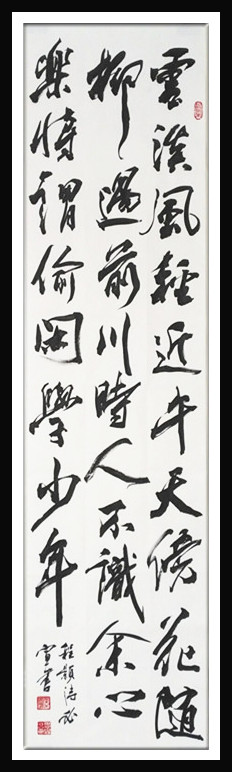 雲淡風輕近午天傍花隨
柳過前川時人不識余心
樂將謂偷閑學少年
程顥詩
宣書